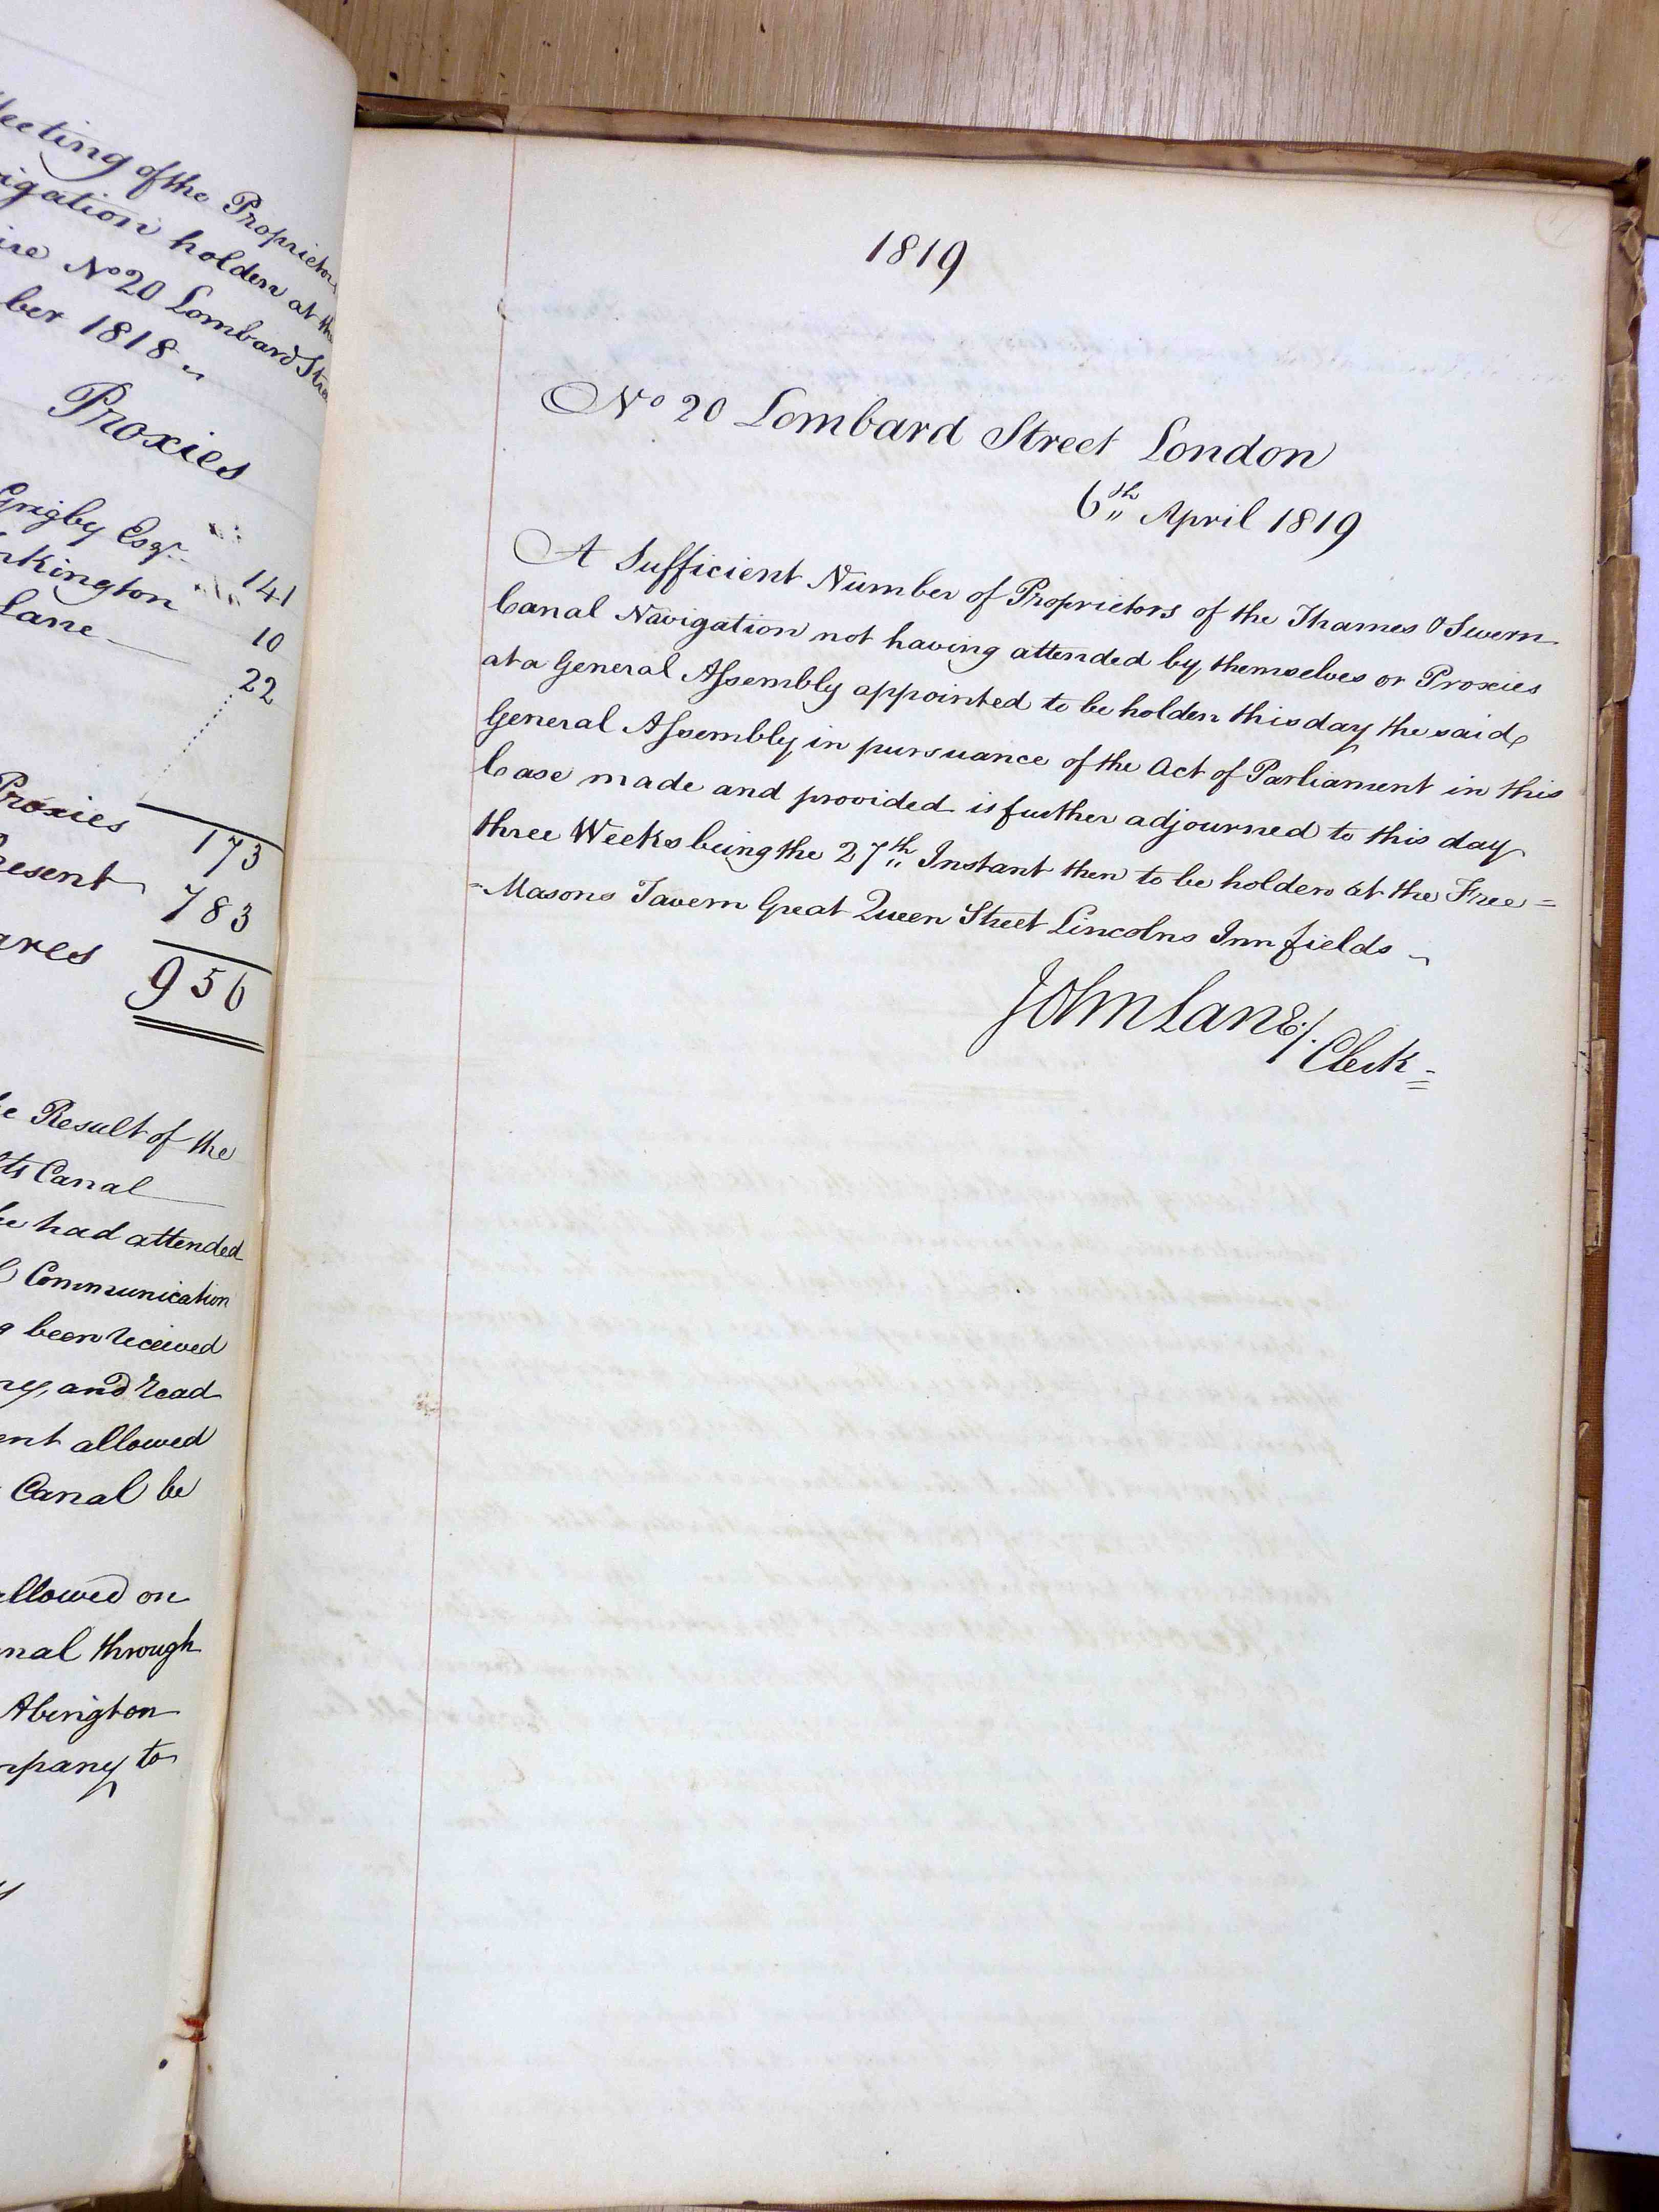 eeting of the Proprietors
igation holden at the
ire No 20 Lombard Stre
ber 1818
Proxies
Grigby Esqr. 141
rkington 10
Lane 22
Proxies 173
resent 783
ares 956
e Result of the
ts Canal
he had attended
Communication
g been received
ny, and read
ent allowed
Canal be
allowed on
nal through
Abington
mpany to
1819
No 20 Lombard Street London
6th April 1819
A Sufficient Number of Proprietors of the Thames & Severn
Canal Navigation not having attended by themselves or Proxies
at a General Assembly appointed to be holden this day the said
General Assembly in pursuance of the Act of Parliament in this
Case made and provided is further adjourned to this day
three Weeks being the 27th Instant then to be holden at the Free=
=Masons Tavern Great Queen Street Lincolns Inn fields
John Lane/. Clerk=